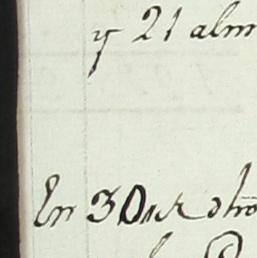 y 21 alm
En 30 de dho